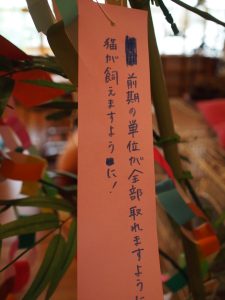 前期の単位が全部取れますように
猫が飼えますように!